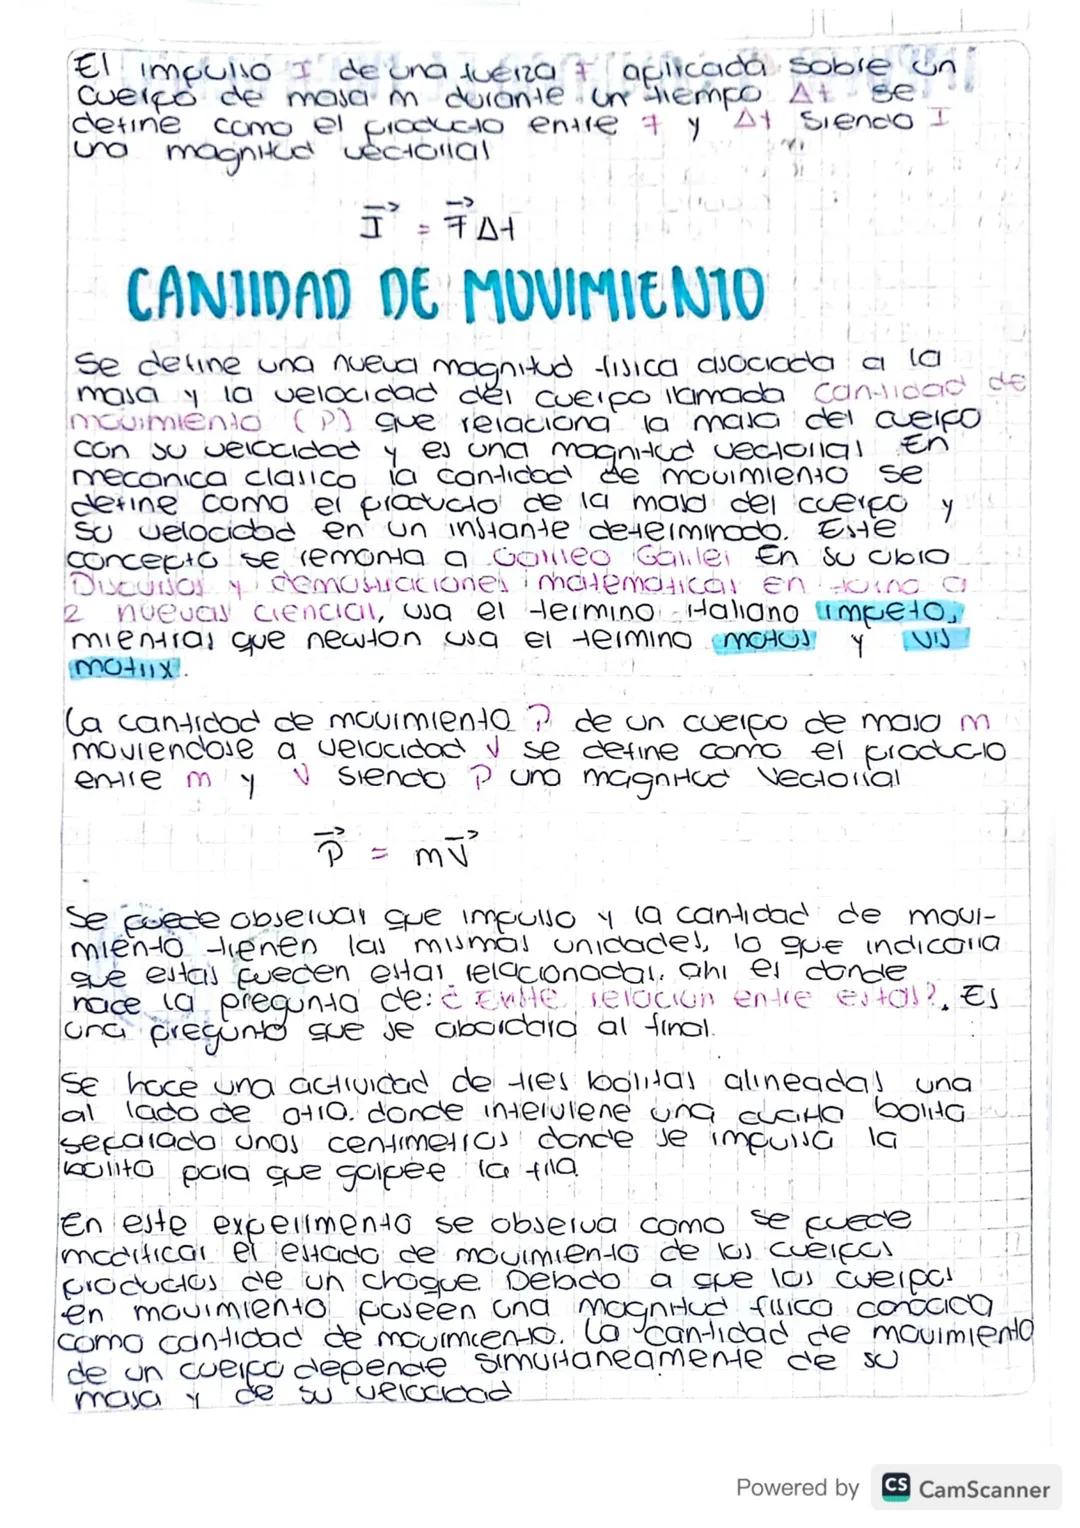 El impulso I de una fuerza F aplicada sobre un
cuerpo de masa m durante un tiempo Δt se
define como el producto entre F y Δt siendo I
una magnitud vectorial
I = F Δt
CANTIDAD DE MOVIMIENTO
Se define una nueva magnitud fisica asociada a la
masa y la velocidad del cuerpo llamada cantidad de
movimiento (P) que relaciona la masa del cuerpo
con su velocidad y es una magnitud vectorial En
mecanica clasica la cantidad de movimiento se
define como el producto de la masa del cuerpo y
su velocidad en un instante determinado. Este
concepto se remonta a Galileo Galilei En su libro
Discursos y demostraciones matematicas en torno a
2 nuevas ciencias, usa el termino italiano impeto,
mientras que newton usa el termino motus y vis
motrix.
La cantidad de movimiento P de un cuerpo de masa m
moviendose a velocidad V se define como el producto
entre m y V siendo P una magnitud vectorial
P = mV
Se puede observar que impulso y la cantidad de movi-
miento tienen las mismas unidades, lo que indicaria
que estas pueden estar relacionadas. ahi es donde
nace la pregunta de: ¿ Existe relacion entre estas?. Es
una pregunta que se abordara al final.
Se hace una actividad de tres bolitas alineadas una
al lado de otra. donde interviene una cuarta bolita
separada unos centimetros donde se impulsa la
bolita para que golpee la fila
En este experimento se observa como se puede
modificar el estado de movimiento de los cuerpos
productos de un choque. Debido a que los cuerpos
en movimiento poseen una magnitud fisica conocida
como cantidad de movimiento. La cantidad de movimiento
de un cuerpo depende simultaneamente de su
masa y de su velocidad
Powered by CS CamScanner